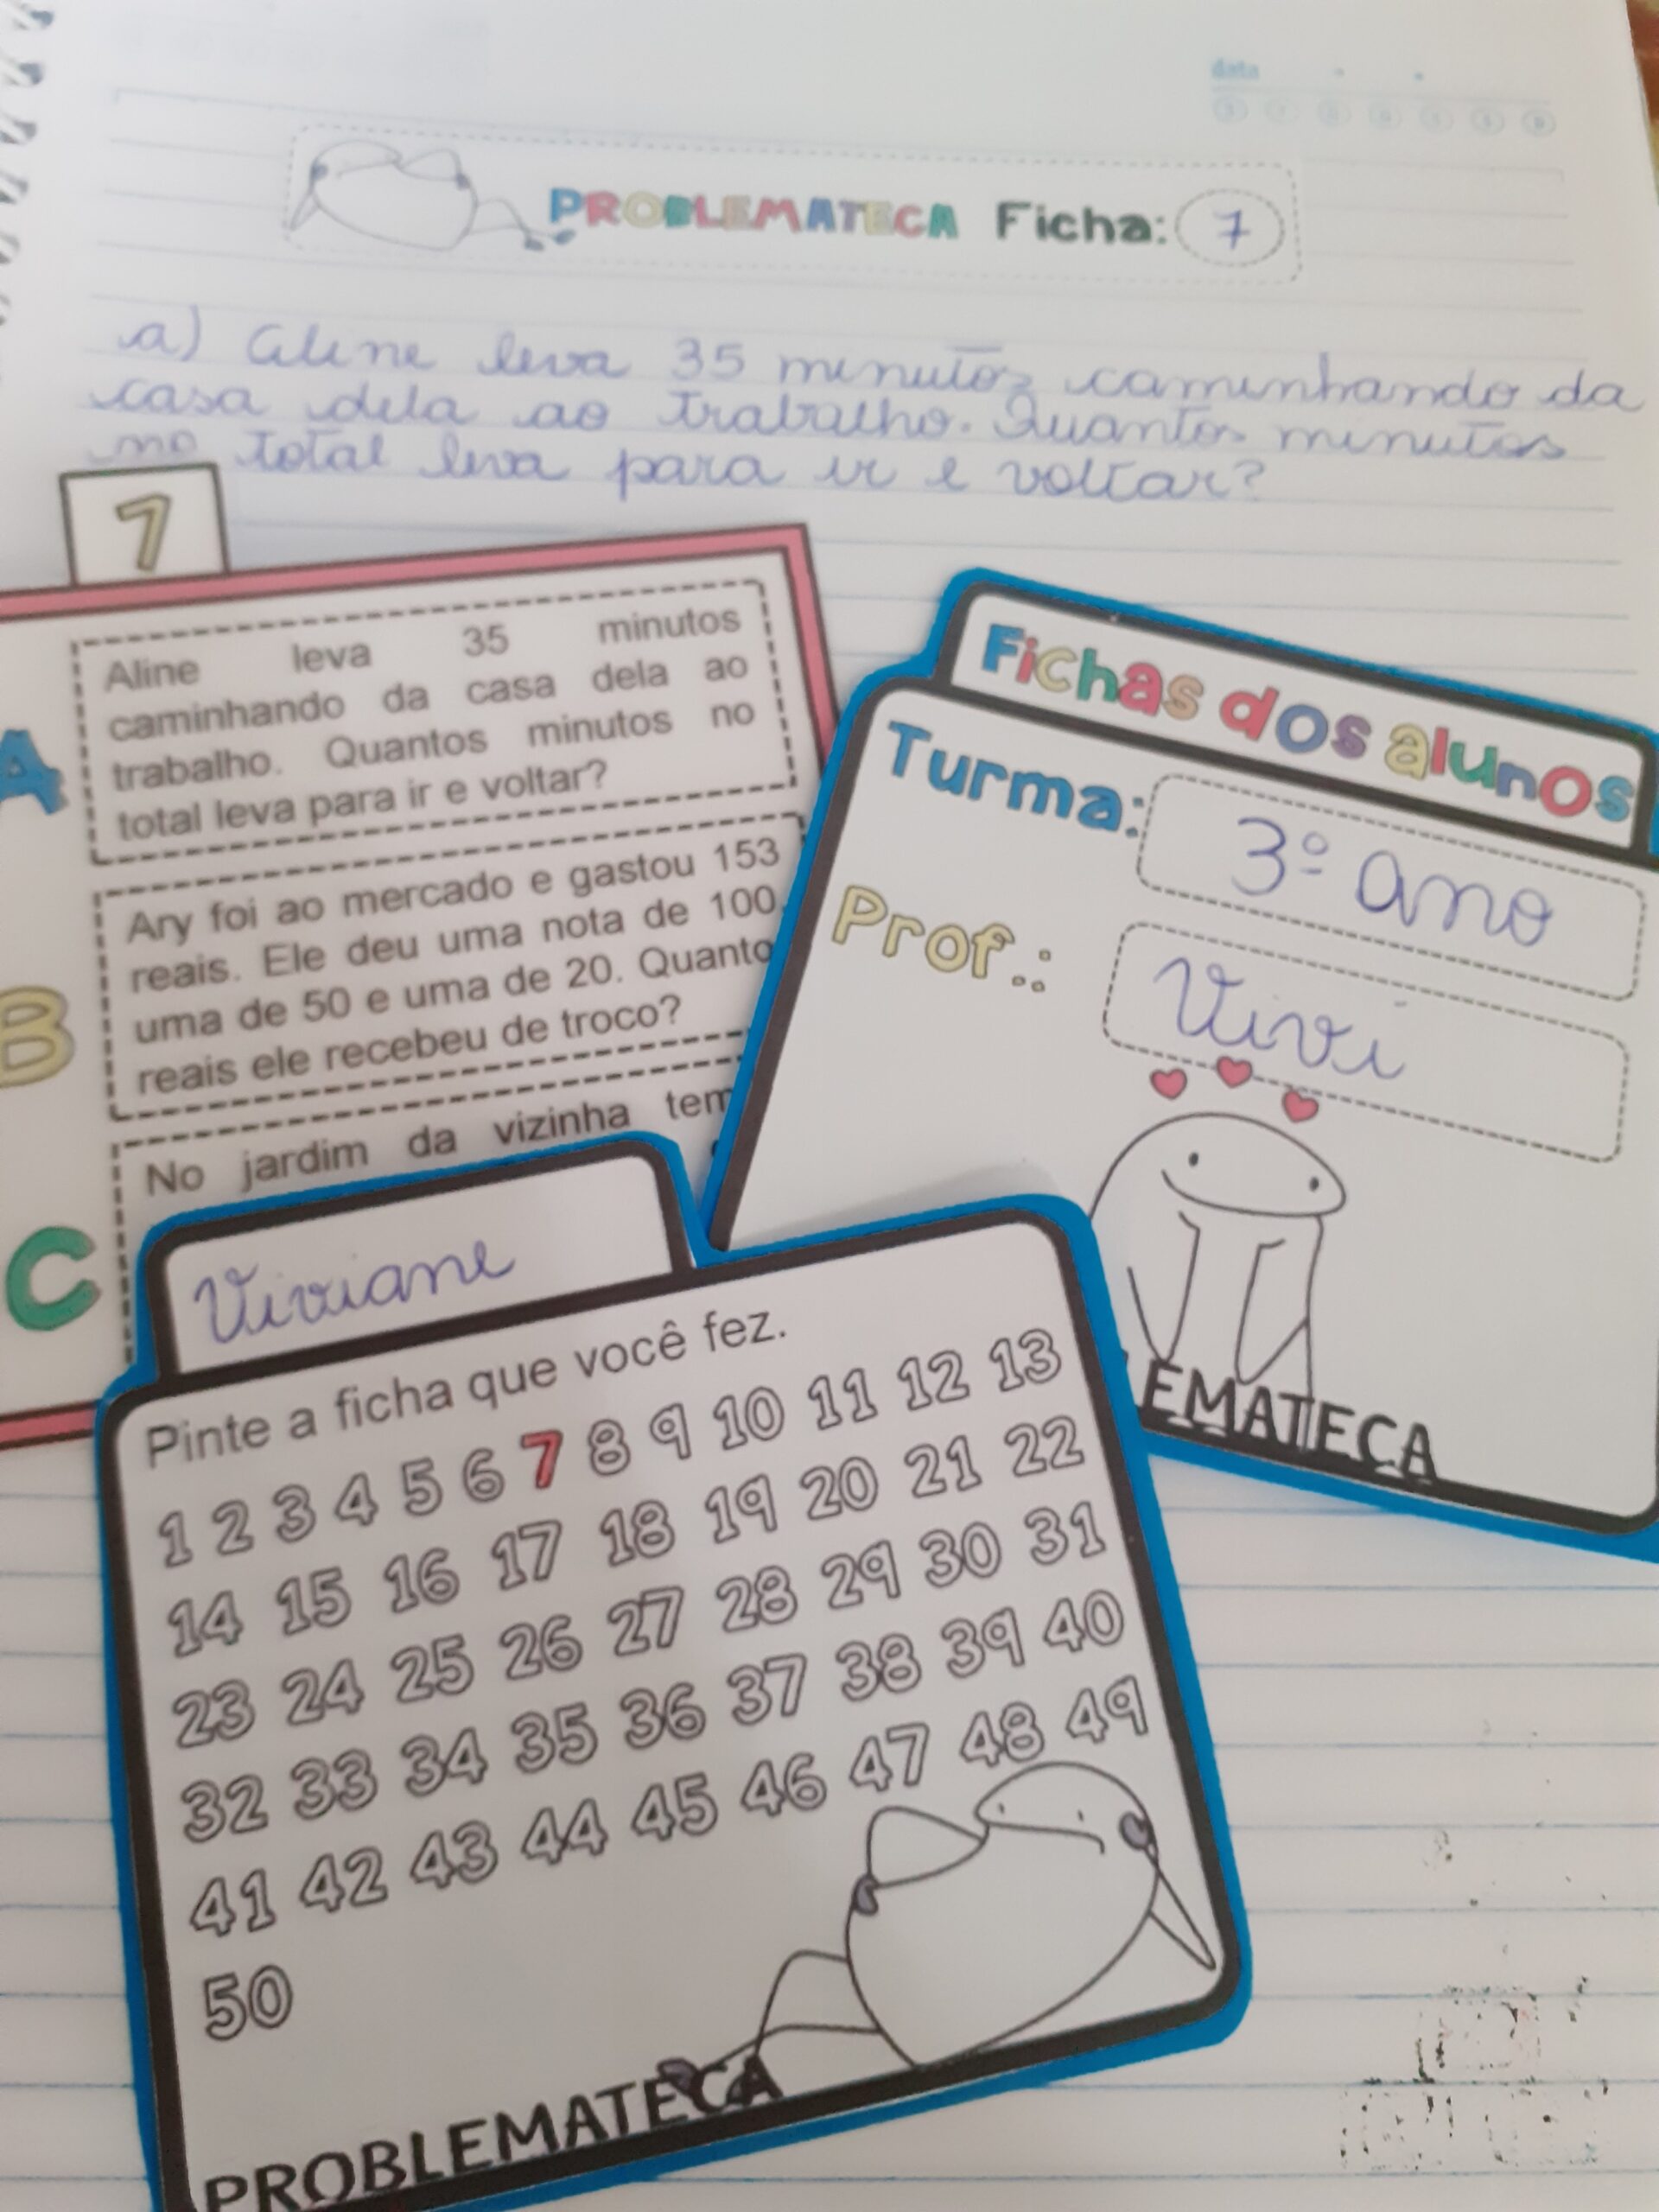 data
PROBLEMATECA Ficha: 7
a) Aline leva 35 minutos caminhando da
casa dela ao trabalho. Quantos minutos
no total leva para ir e voltar?
7
A
Aline leva 35 minutos
caminhando da casa dela ao
trabalho. Quantos minutos no
total leva para ir e voltar?
B
Ary foi ao mercado e gastou 153
reais. Ele deu uma nota de 100,
uma de 50 e uma de 20. Quanto
reais ele recebeu de troco?
C
No jardim da vizinha tem
Fichas dos alunos
Turma: 3º ano
Prof.: Vivi
EMATECA
Viviane
Pinte a ficha que você fez.
1 2 3 4 5 6 7 8 9 10 11 12 13
14 15 16 17 18 19 20 21 22
23 24 25 26 27 28 29 30 31
32 33 34 35 36 37 38 39 40
41 42 43 44 45 46 47 48 49
50
PROBLEMATECA